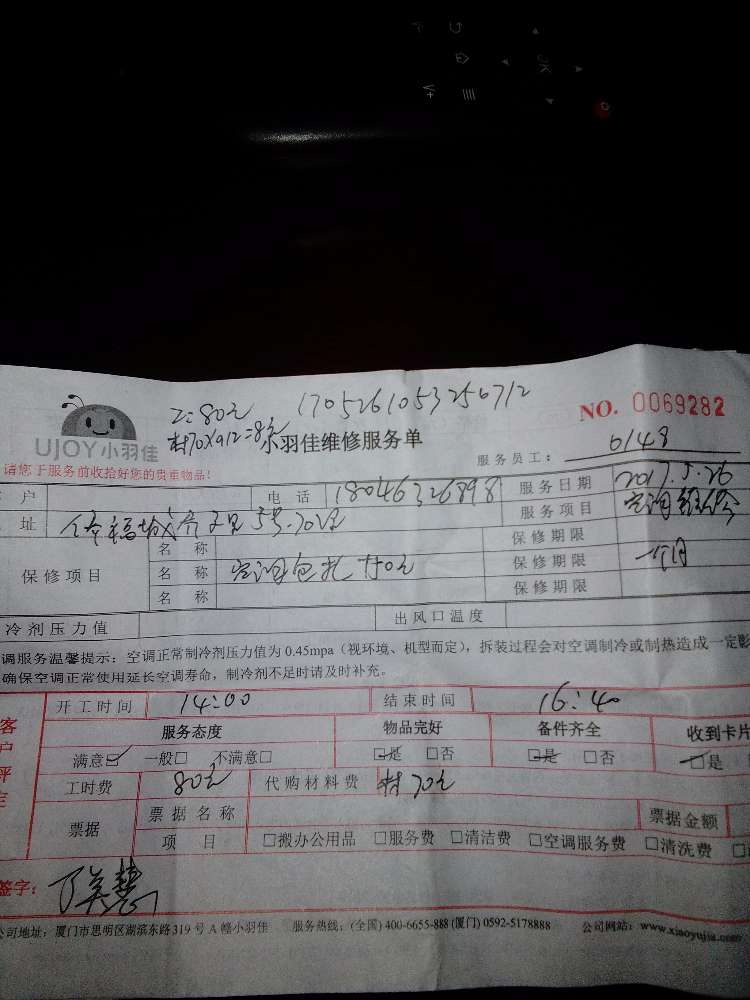 V+
OK
工=80元 170526105325671 2
材70×0.12=8元
小羽佳维修服务单
NO. 0069282
UJOY小羽佳
服务员工： 6148
请您于服务前收拾好您的贵重物品！
户 电话 18046326898 服务日期 2017.5.26
址 5号.702 服务项目 空调维修
保修项目 名称 保修期限
名称 空调包扎 150元 保修期限 一个月
名称 保修期限
冷剂压力值 出风口温度
调服务温馨提示：空调正常制冷剂压力值为 0.45mpa（视环境、机型而定），拆装过程会对空调制冷或制热造成一定影
确保空调正常使用延长空调寿命，制冷剂不足时请及时补充。
客户评定
开工时间 14:00 结束时间 16:40
服务态度 物品完好 备件齐全 收到卡片
满意☑ 一般□ 不满意□ ☑是 □否 ☑是 □否 ☑是
工时费 80元 代购材料费 材70元
票据 票据名称 票据金额
项目 □搬办公用品 □服务费 □清洁费 □空调服务费 □清洗费
签字： 丁美慧
公司地址：厦门市思明区湖滨东路319号A幢小羽佳 服务热线：(全国) 400-6655-888 (厦门) 0592-5178888 公司网站：www.xiaoyujia.com